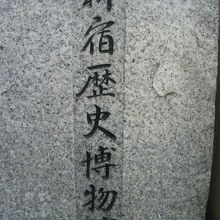 新宿歴史博物